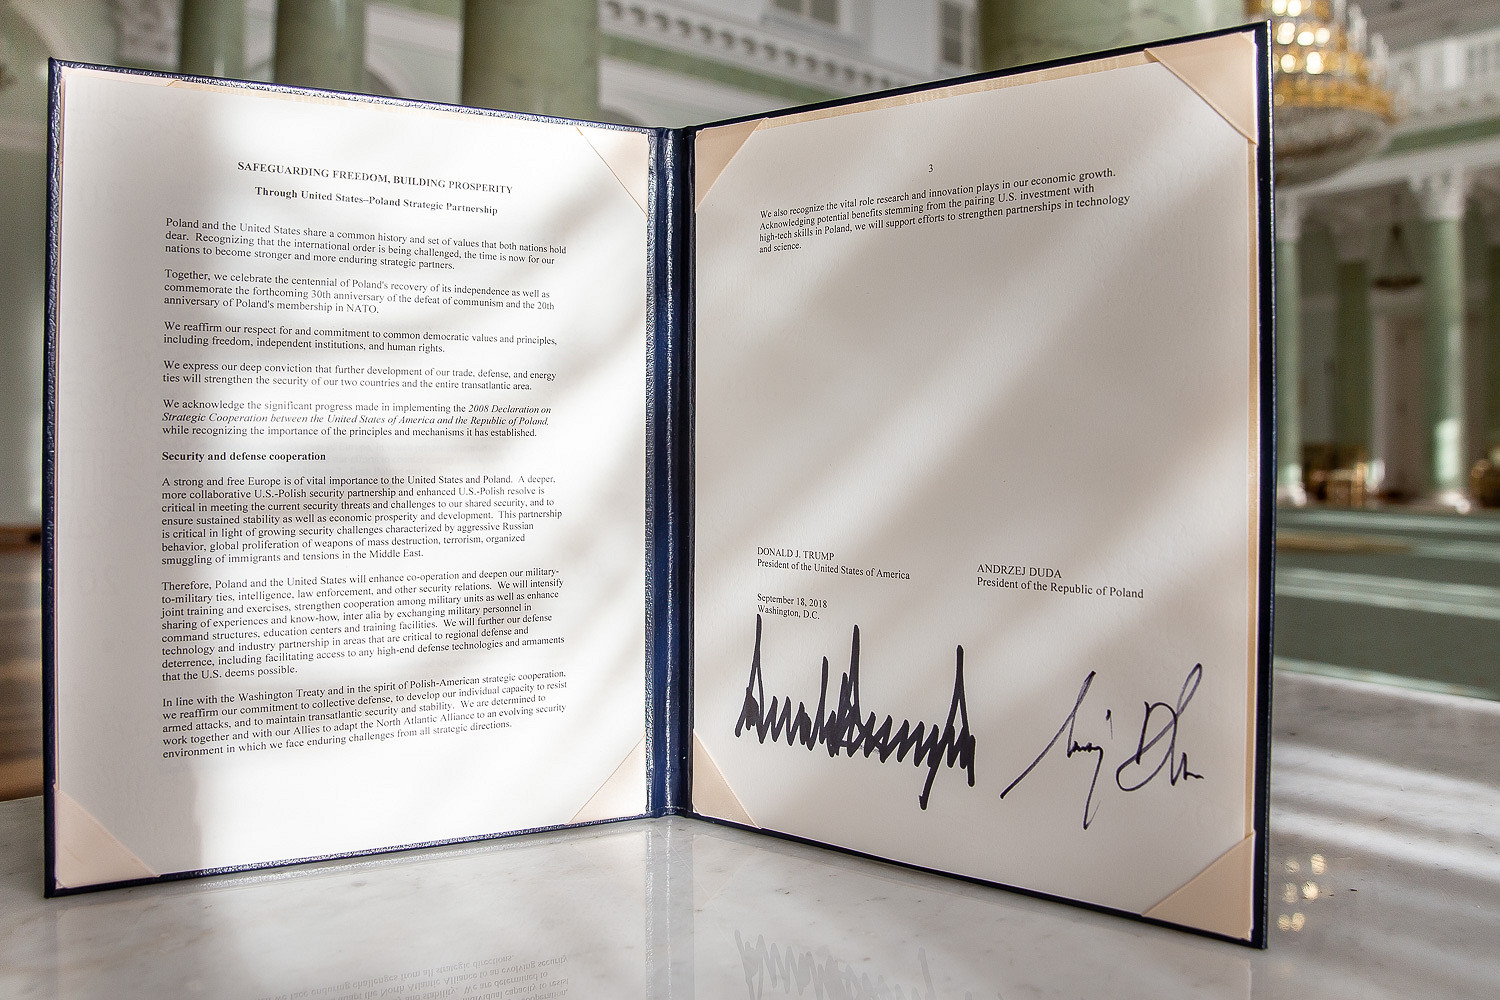 SAFEGUARDING FREEDOM, BUILDING PROSPERITY
Through United States–Poland Strategic Partnership
Poland and the United States share a common history and set of values that both nations hold
dear. Recognizing that the international order is being challenged, the time is now for our
nations to become stronger and more enduring strategic partners.
Together, we celebrate the centennial of Poland's recovery of its independence as well as
commemorate the forthcoming 30th anniversary of the defeat of communism and the 20th
anniversary of Poland's membership in NATO.
We reaffirm our respect for and commitment to common democratic values and principles,
including freedom, independent institutions, and human rights.
We express our deep conviction that further development of our trade, defense, and energy
ties will strengthen the security of our two countries and the entire transatlantic area.
We acknowledge the significant progress made in implementing the 2008 Declaration on
Strategic Cooperation between the United States of America and the Republic of Poland,
while recognizing the importance of the principles and mechanisms it has established.
Security and defense cooperation
A strong and free Europe is of vital importance to the United States and Poland. A deeper,
more collaborative U.S.-Polish security partnership and enhanced U.S.-Polish resolve is
critical in meeting the current security threats and challenges to our shared security, and to
ensure sustained stability as well as economic prosperity and development. This partnership
is critical in light of growing security challenges characterized by aggressive Russian
behavior, global proliferation of weapons of mass destruction, terrorism, organized
smuggling of immigrants and tensions in the Middle East.
Therefore, Poland and the United States will enhance co-operation and deepen our military-
to-military ties, intelligence, law enforcement, and other security relations. We will intensify
joint training and exercises, strengthen cooperation among military units as well as enhance
sharing of experiences and know-how, inter alia by exchanging military personnel in
command structures, education centers and training facilities. We will further our defense
technology and industry partnership in areas that are critical to regional defense and
deterrence, including facilitating access to any high-end defense technologies and armaments
that the U.S. deems possible.
In line with the Washington Treaty and in the spirit of Polish-American strategic cooperation,
we reaffirm our commitment to collective defense, to develop our individual capacity to resist
armed attacks, and to maintain transatlantic security and stability. We are determined to
work together and with our Allies to adapt the North Atlantic Alliance to an evolving security
environment in which we face enduring challenges from all strategic directions.
3
We also recognize the vital role research and innovation plays in our economic growth.
Acknowledging potential benefits stemming from the pairing U.S. investment with
high-tech skills in Poland, we will support efforts to strengthen partnerships in technology
and science.
DONALD J. TRUMP
President of the United States of America
ANDRZEJ DUDA
President of the Republic of Poland
September 18, 2018
Washington, D.C.